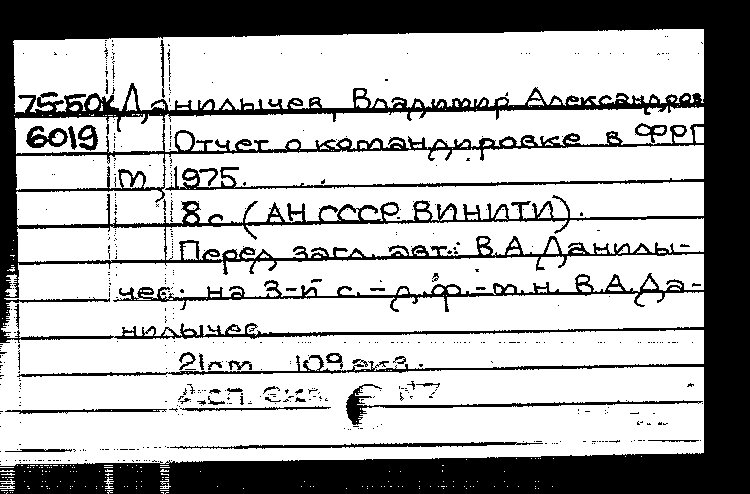 75-50к Данилычев, Владимир Александров
6019 Отчет о командировке в ФРГ
m, 1975.
8 с. (АН СССР. ВИНИТИ).
Перед загл. авт.: В.А. Данилы-
чев; на 3-й с. - д.ф.-м.н. В.А. Да-
нилычев.
21 см 109 экз.
№7